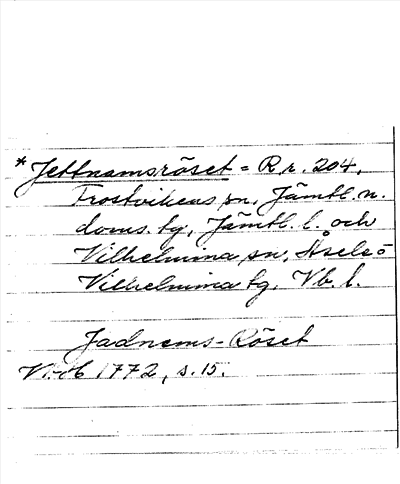 * Jettnamsröset = R r. 204,
Frostvikens sn, Jämtl. n.
doms. tg, Jämtl. l. och
Vilhelmina sn, Åsele o
Vilhelmina tg, Vb. l.
Jadnems-Röset
1772, s. 15.